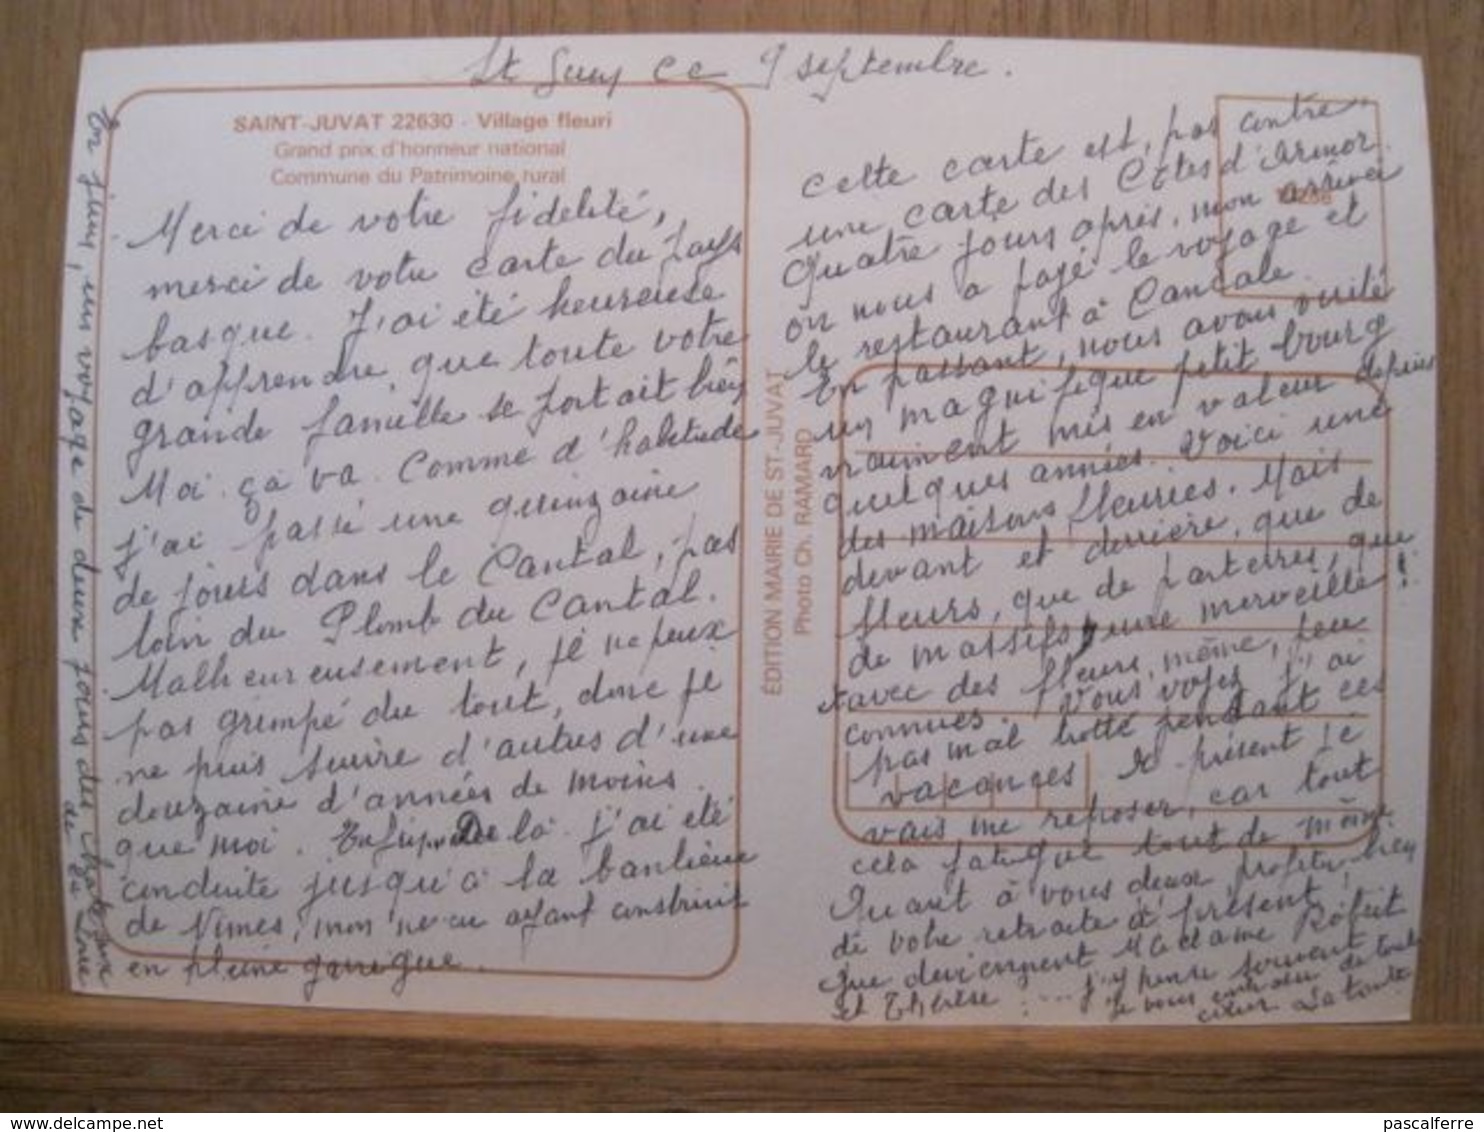 ce 9 septembre.
SAINT-JUVAT 22630 - Village fleuri
Grand prix d'honneur national
Commune du Patrimoine rural
Merci de votre fidelité,
merci de votre carte du pays
basque. J'ai été heureuse
d'apprendre que toute votre
grande famille se portait bien
Moi ça va. Comme d'habitude
j'ai passé une quinzaine
de jours dans le Cantal, pas
loin du Plomb du Cantal.
Malheureusement, je ne peux
pas grimpé du tout, donc je
ne puis suivre d'autres d'une
douzaine d'années de moins
que moi. De là j'ai été
conduite jusqu'à la banlieue
de Nimes, mon neveu ayant construit
en pleine garrigue.
En juin, un voyage de deux jours des chateaux
de la Loire
ÉDITION MAIRIE DE ST-JUVAT
Photo Ch. RAMARD
Cette carte est, par contre,
une carte des Côtes d'Armor.
Quatre jours après, mon arrivée
on nous a payé le voyage et
le restaurant à Cancale.
En passant, nous avons visité
un magnifique petit bourg
vraiment mis en valeur depuis
quelques années. Voici une
des maisons fleuries. Mais
devant et derrière, que de
fleurs, que de parterres, que
de massifs, une merveille !
avec des fleurs, même, peu
connues. Vous voyez j'ai
pas mal trotté pendant ces
vacances. A présent je
vais me reposer, car tout
cela fatigue tout de même
Quant à vous deux, profitez bien
de votre retraite à présent,
Que deviennent Madame Robert
et Thérèse ... J'y pense souvent
Je vous de tout
cœur La tante